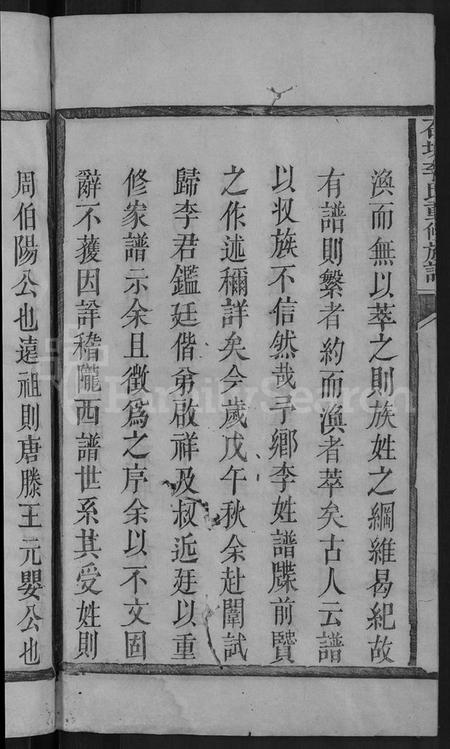 渙而無以萃之則族姓之綱維曷紀故
有譜則繫者約而渙者萃矣古人云譜
以収族不信然哉予鄉李姓譜牒前賢
之作述稱詳矣今歲戊午秋余赴闈試
歸李君鑑廷偕弟啟祥及叔近廷以重
修家譜示余且徵爲之序余以不文固
辭不獲因詳稽隴西譜世系其受姓則
周伯陽公也遠祖則唐滕王元嬰公也
李氏重修族譜
FamilySearch